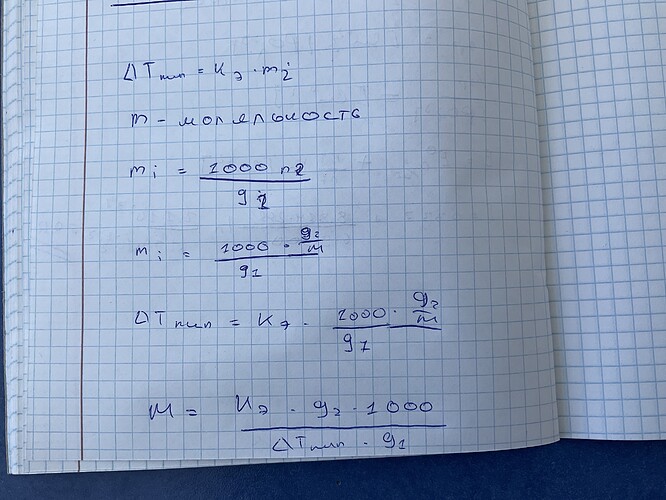 ΔTкип = Kэ · mi
m - моляльность
mi = 1000 n2 / g1
mi = 1000 · g2/M / g1
ΔTкип = Kэ · 1000 · g2/M / g1
M = Kэ · g2 · 1000 / ΔTкип · g1